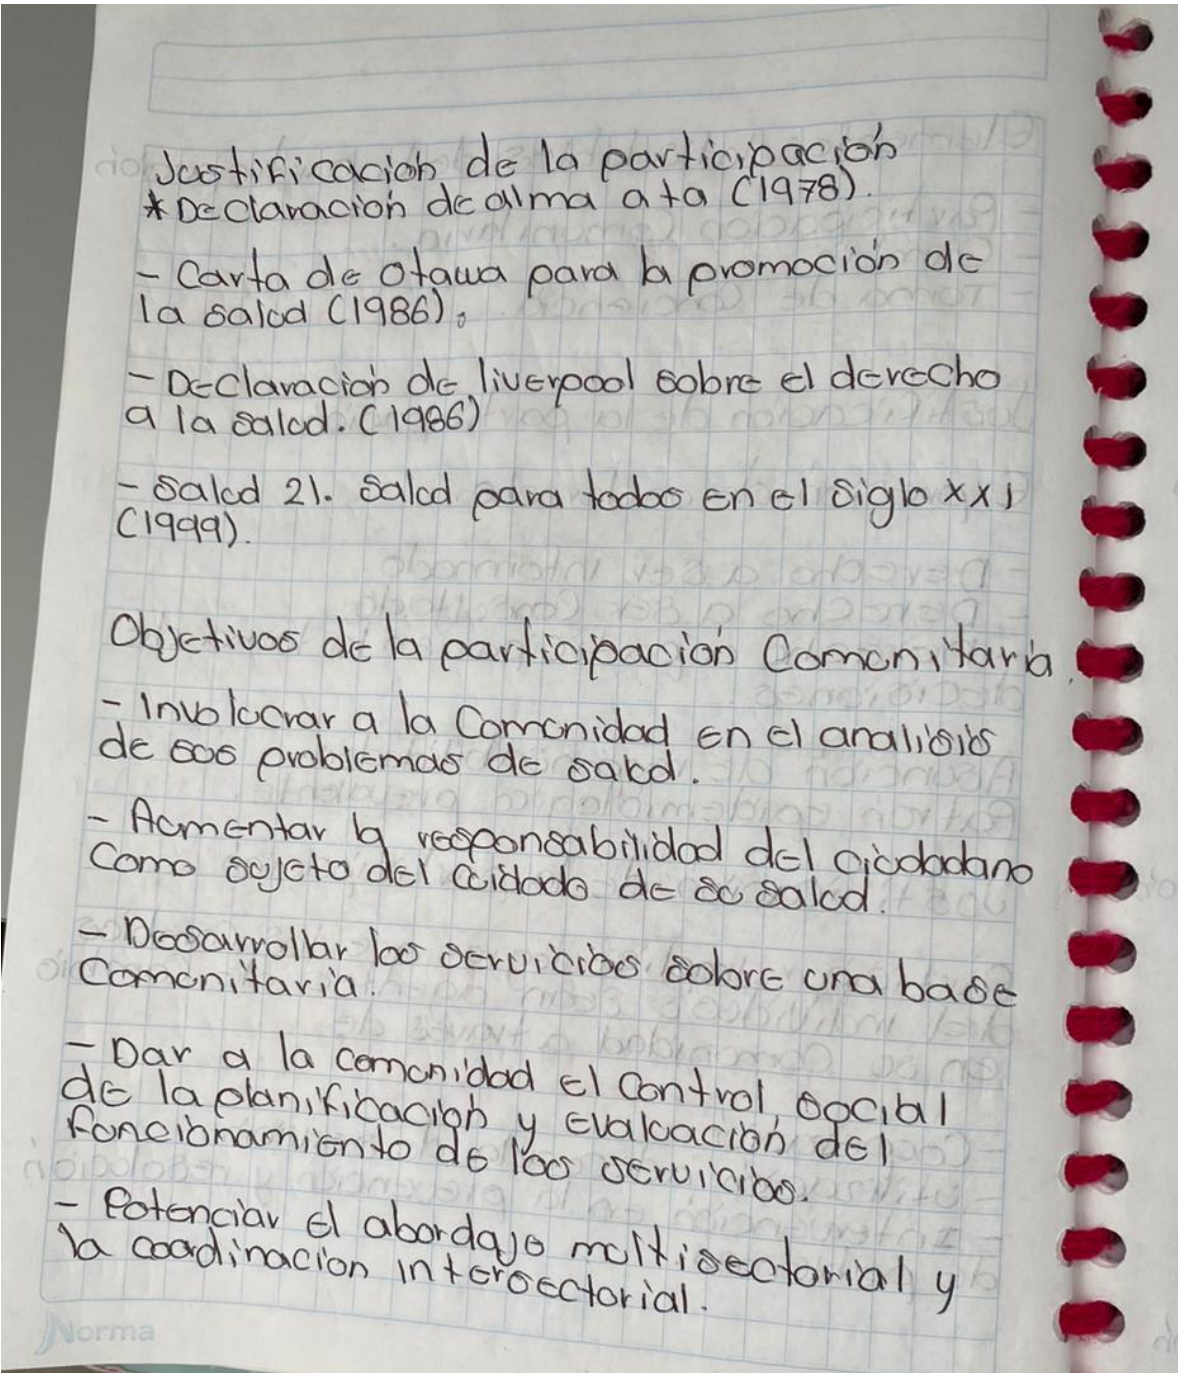 Justificación de la participación
* Declaración de alma ata (1978).
- Carta de Otawa para la promoción de
la salud (1986).
- Declaración de liverpool sobre el derecho
a la salud. (1986)
- Salud 21. Salud para todos en el siglo XXI
(1999).
Objetivos de la participación Comunitaria.
- Involucrar a la Comunidad en el analisis
de sus problemas de salud.
- Aumentar la responsabilidad del ciudadano
Como sujeto del cuidado de su salud.
- Desarrollar los servicios sobre una base
Comunitaria.
- Dar a la comunidad el Control social
de la planificación y evaluación del
funcionamiento de los servicios.
- Potenciar el abordaje multisectorial y
la coordinacion intersectorial.
Norma